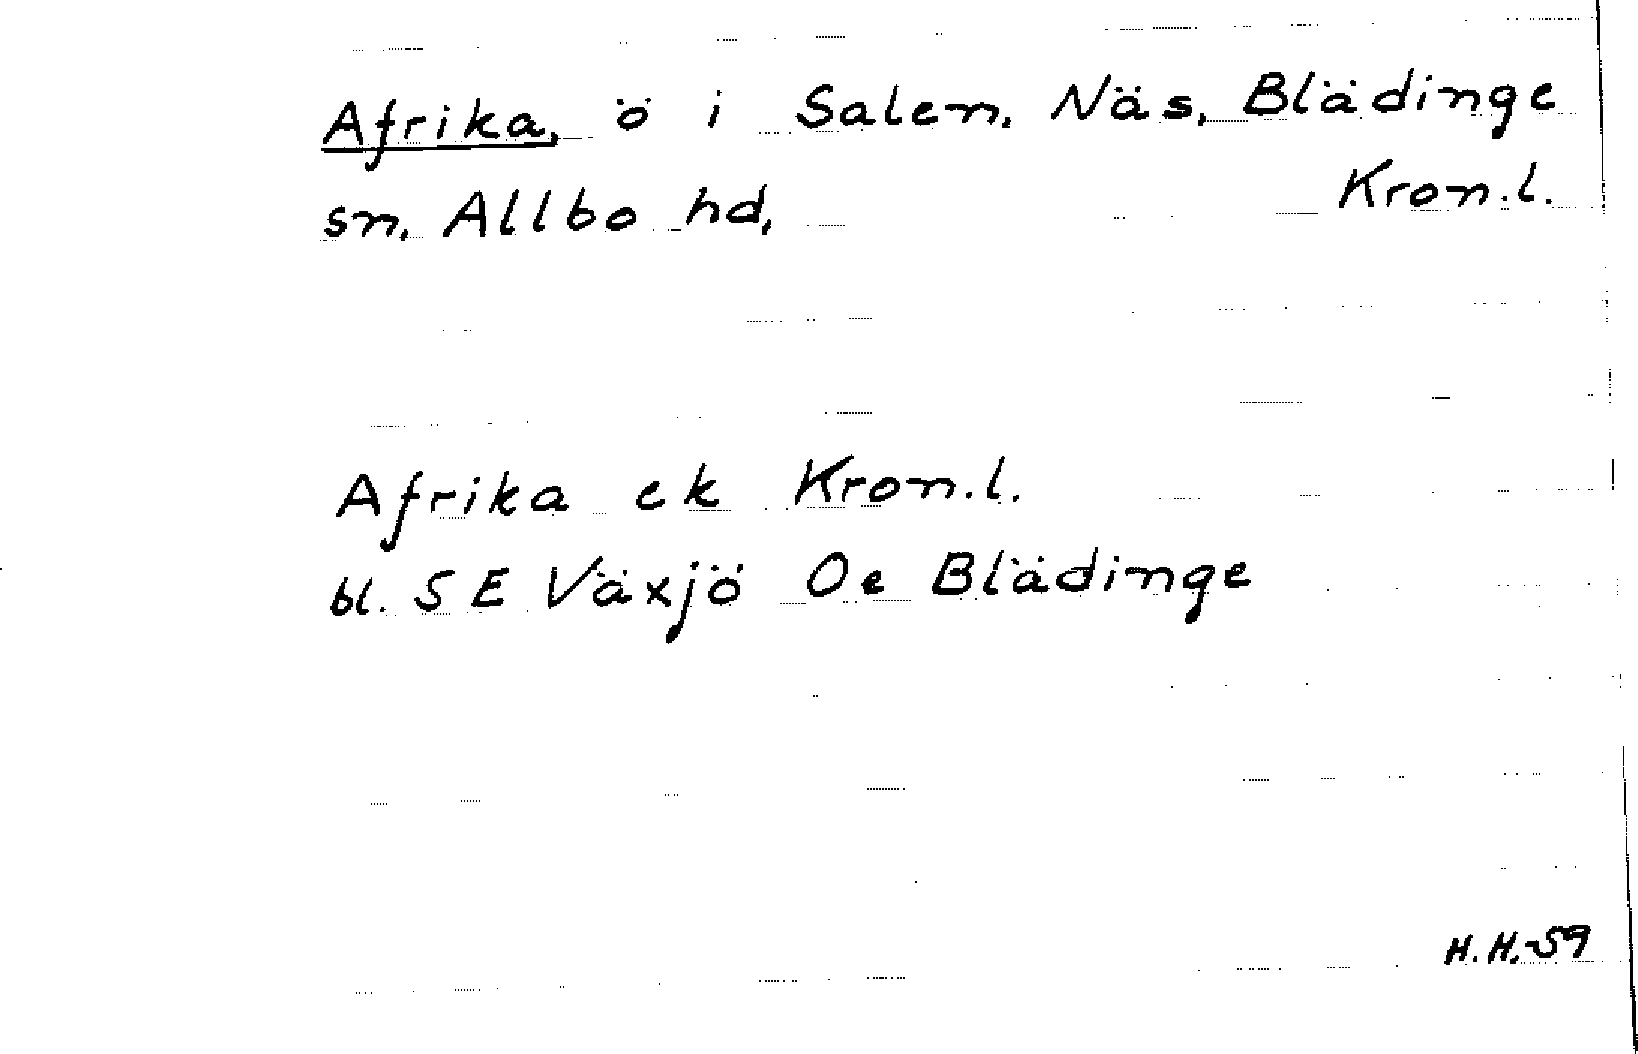 Afrika, ö i Salen, Näs, Blädinge
sn, Allbo hd, Kron.l.
Afrika ek Kron.l.
bl. S E Växjö Oe Blädinge
H.H.-59